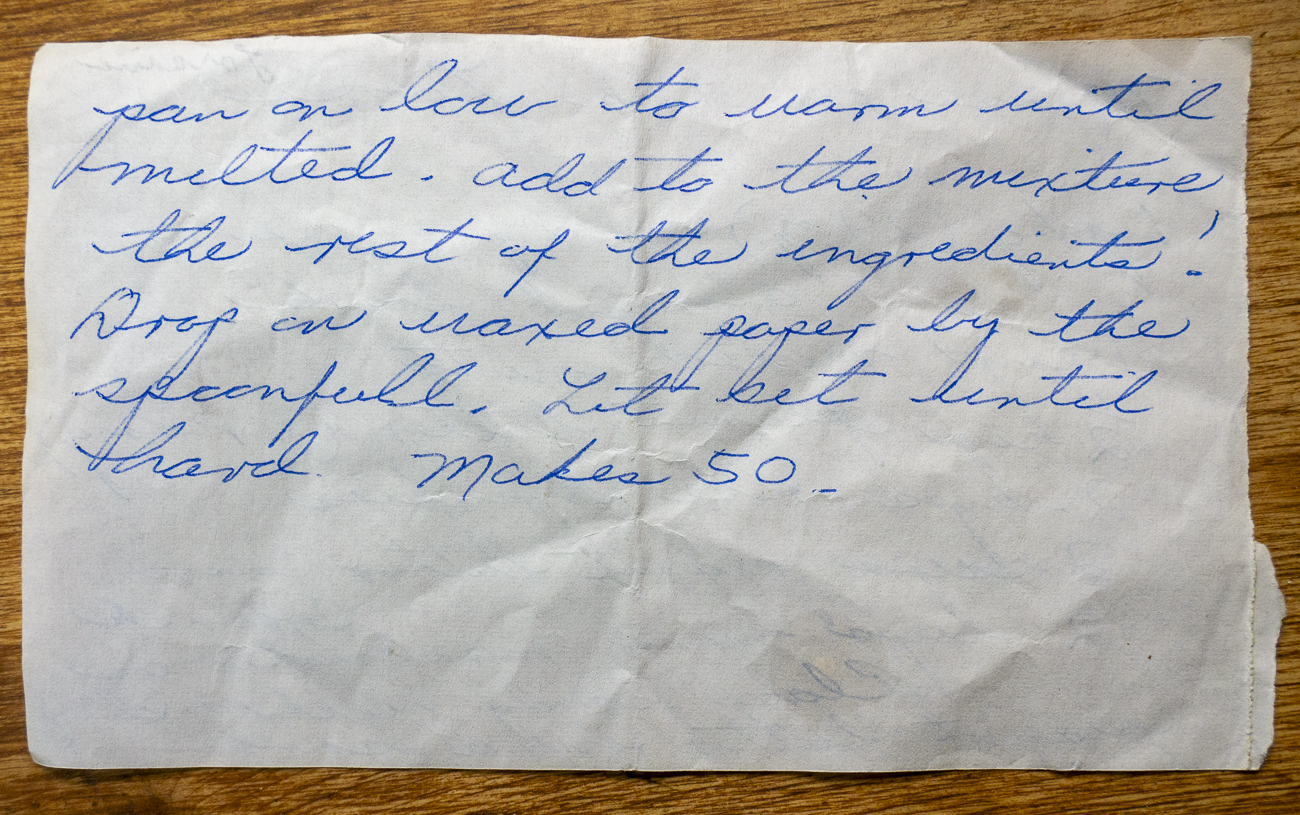 pan on low to warm until
melted. Add to the mixture
the rest of the ingredients!
Drop on waxed paper by the
spoonfull. Let set until
hard. Makes 50.